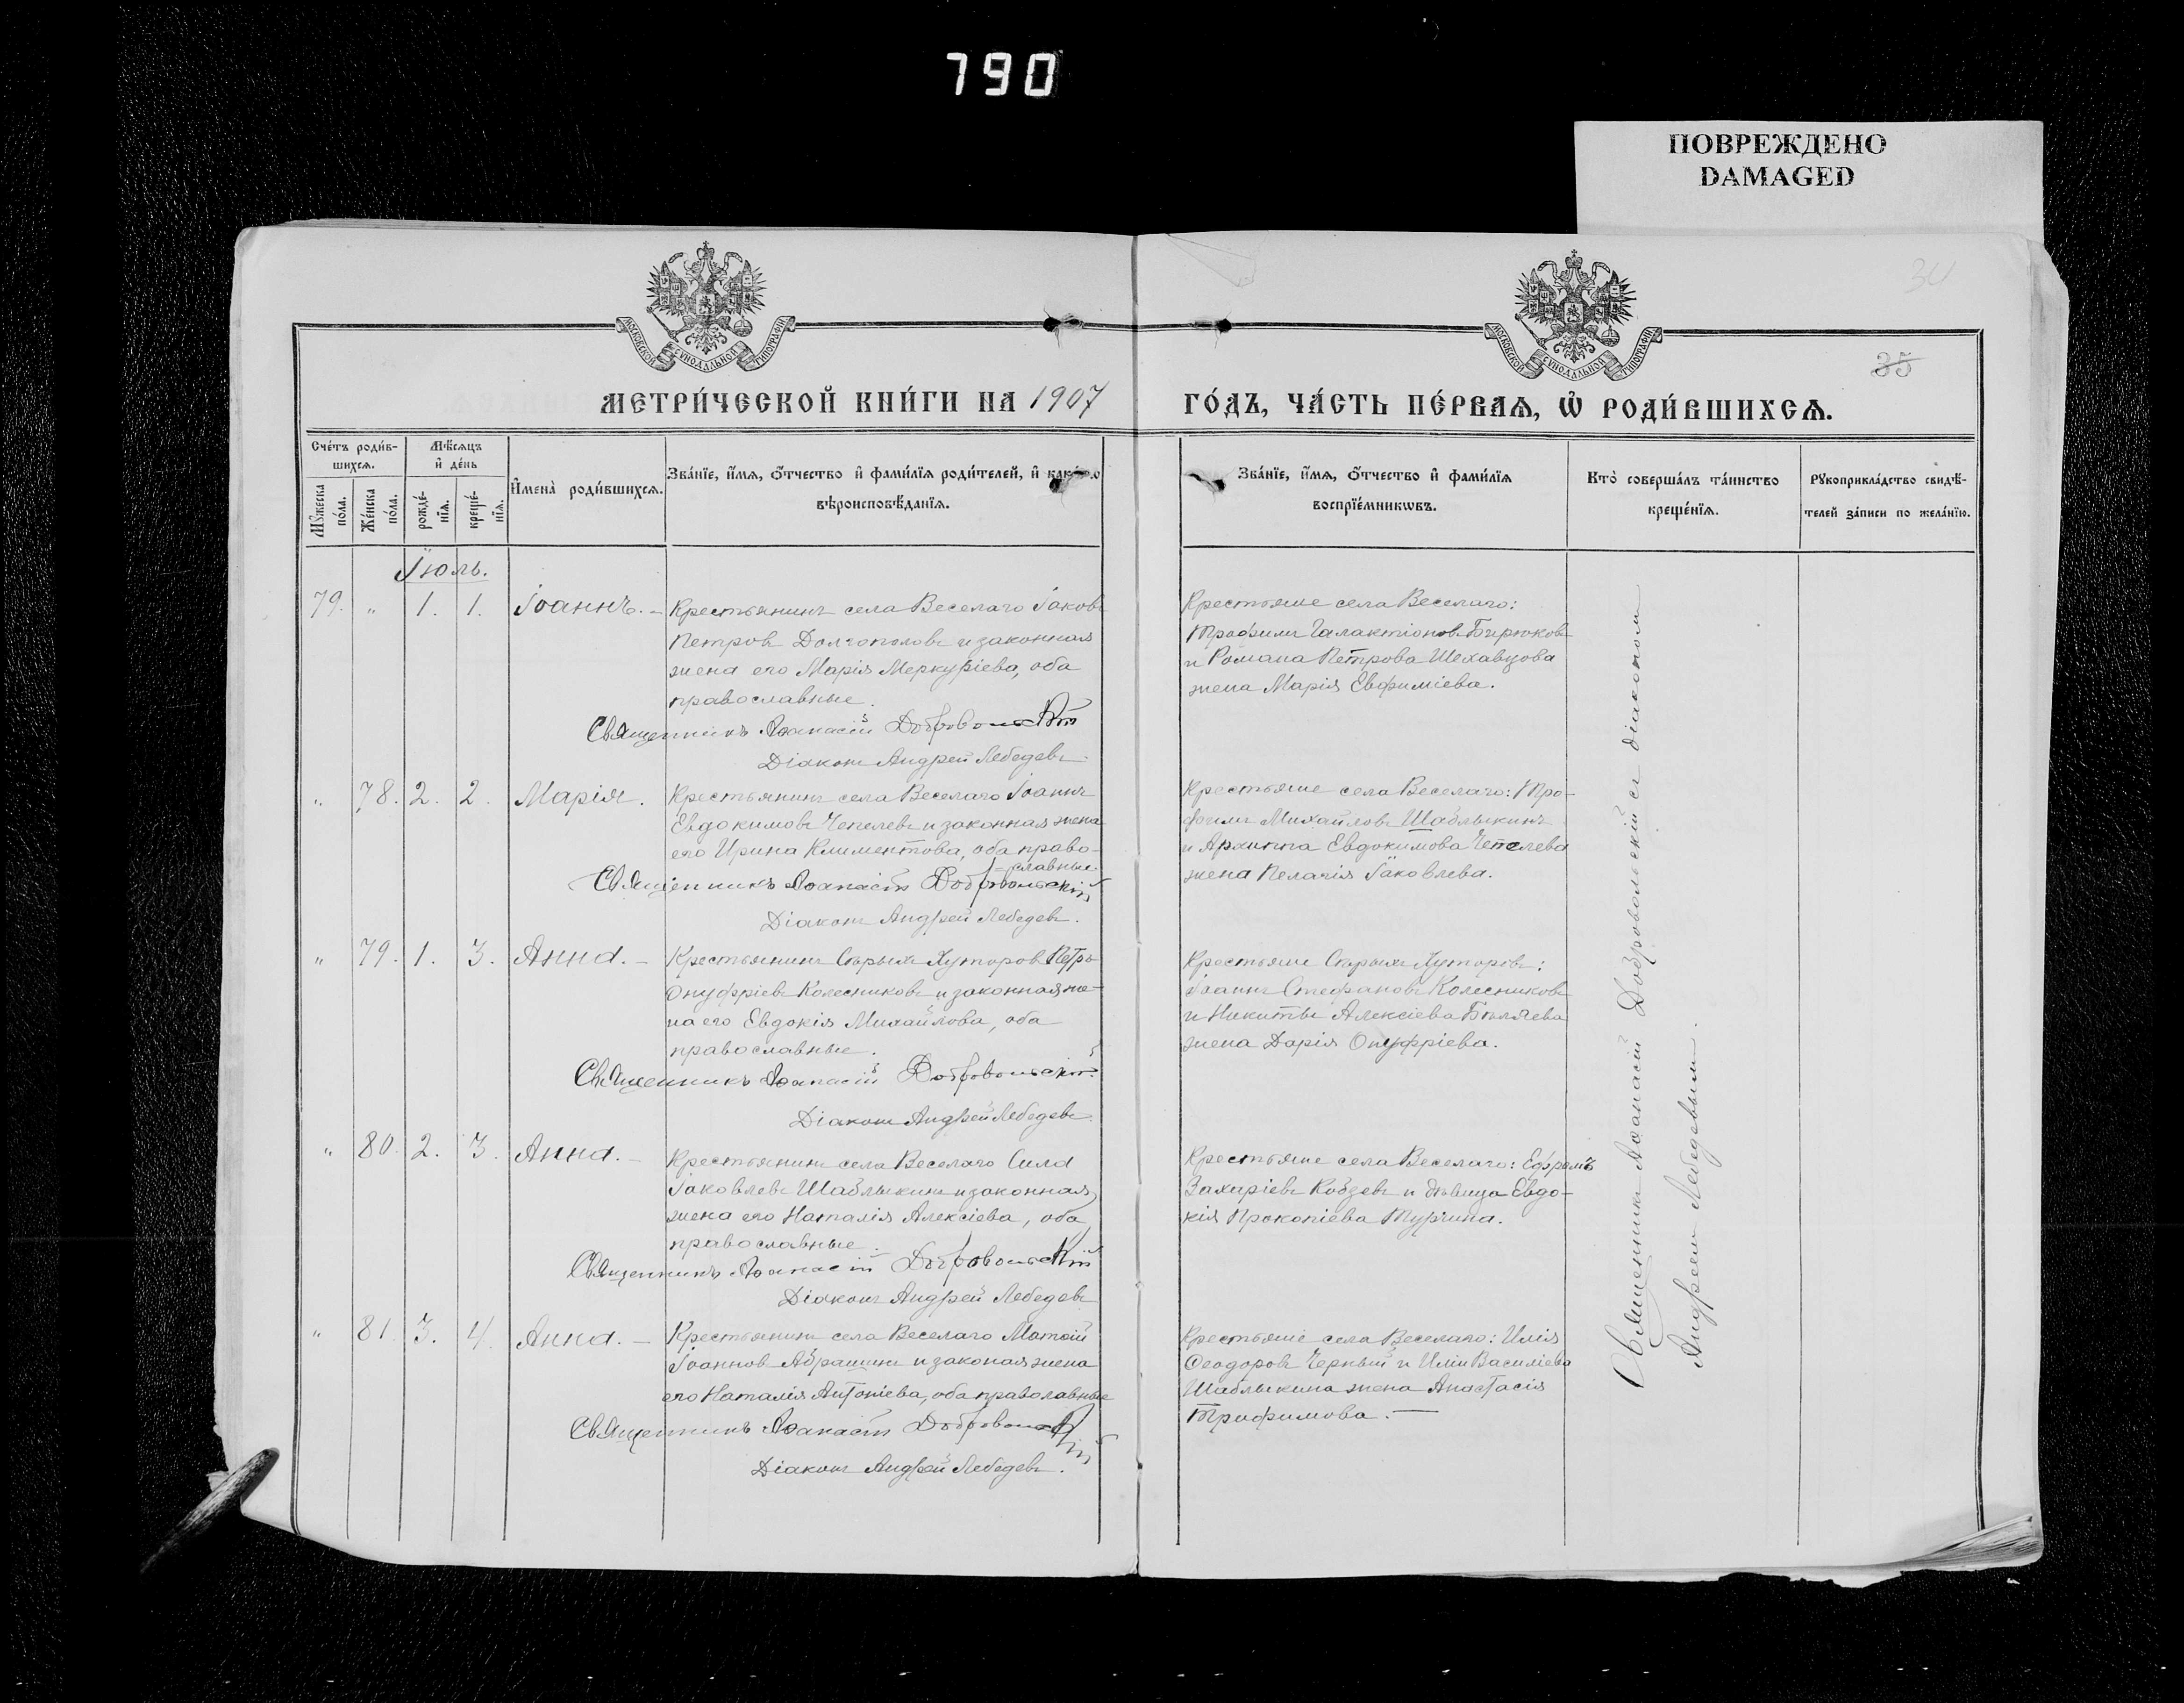 790
ПОВРЕЖДЕНО
DAMAGED
МОСКОВСКОЙ СУНОДАЛЬНОЙ ТИПОГРАФІИ
МОСКОВСКОЙ СУНОДАЛЬНОЙ ТИПОГРАФІИ
34
35
МЕТРИ́ЧЕСКОЙ КНИ́ГИ НА 1907 ГО́ДЪ, ЧА́СТЬ ПЕ́РВАѦ, Ѡ҆ РОДИ́ВШИХСѦ.
Сче́тъ роди́в-
шихсѧ.
Мѣ́сѧцъ
и҆ де́нь
Мꙋ́жеска
по́ла.
Же́нска
по́ла.
рожде́-
нїѧ.
креще́-
нїѧ.
И҆мена̀ роди́вшихсѧ.
Зва́нїе, и҆́мѧ, ѻ҆́тчество и҆ фами́лїѧ роди́телей, и҆
вѣроисповѣ́данїѧ.
Зва́нїе, и҆́мѧ, ѻ҆́тчество и҆ фами́лїѧ
воспрїе́мникѡвъ.
Кто̀ соверша́лъ та́инство
креще́нїѧ.
Рꙋкоприкла́дство свидѣ́-
телей за́писи по жела́нїю.
Іюль.
79. " 1. 1. Іоаннъ. –
Крестьянинъ села Веселаго Іаковъ
Петровъ Долгополовъ и законная
жена его Марія Меркуріева, оба
православные.
Священникъ Аѳанасій Добровольскій
Діаконъ Андрей Лебедевъ.
Крестьяне села Веселаго:
Трофимъ Галактіоновъ Бирюковъ
и Романа Петрова Шехавцова
жена Марія Евфиміева.
" 78. 2. 2. Марія.
Крестьянинъ села Веселаго Іоаннъ
Евдокимовъ Чепелевъ и законная жена
его Ирина Климентова, оба право-
славные.
Священникъ Аѳанасій Добровольскій
Діаконъ Андрей Лебедевъ.
Крестьяне села Веселаго: Тро-
фимъ Михайловъ Шаблыкинъ
и Архиппа Евдокимова Чепелева
жена Пелагія Іаковлева.
" 79. 1. 3. Анна. –
Крестьянинъ Сѣрыхъ Хуторовъ Петръ
Онуфріевъ Колесниковъ и законная же-
на его Евдокія Михайлова, оба
православные.
Священникъ Аѳанасій Добровольскій
Діаконъ Андрей Лебедевъ.
Крестьяне Сѣрыхъ Хуторовъ:
Іоаннъ Стефановъ Колесниковъ
и Никиты Алексіева Бѣляева
жена Дарія Онуфріева.
" 80. 2. 3. Анна. –
Крестьянинъ села Веселаго Сила
Іаковлевъ Шаблыкинъ и законная
жена его Наталія Алексіева, оба
православные.
Священникъ Аѳанасій Добровольскій
Діаконъ Андрей Лебедевъ
Крестьяне села Веселаго: Ефремъ
Захаріевъ Кобзевъ и дѣвица Евдо-
кія Прокопіева Турчина.
" 81. 3. 4. Анна. –
Крестьянинъ села Веселаго Матѳій
Іоаннов Абрашинъ и законая жена
его Наталія Антоніева, оба праволавные
Священникъ Аѳанасій Добровольскій
Діаконъ Андрей Лебедевъ.
Крестьяне села Веселаго: Илія
Ѳеодоровъ Черный и Иліи Василіева
Шаблыкина жена Анастасія
Трифимова. –
Священникъ Аѳанасій Добровольскій съ діакономъ
Андреем Лебедевымъ.